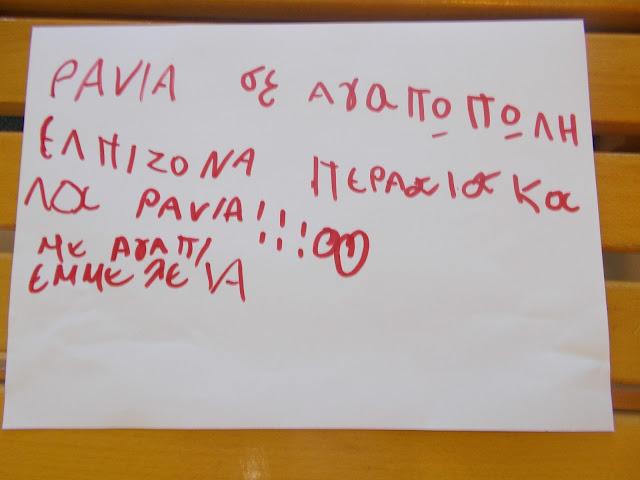 ΡΑΝΙΑ σε ΑγαΠΟΠΟΛΗ
ΕΛΠΙΖΟΝΑ ΠΕΡΑσΙσ Κα
ΛΑ ΡΑΝΙΑ!!!!
με ΑγαΠΙ
ΕΜΜελεΙΑ